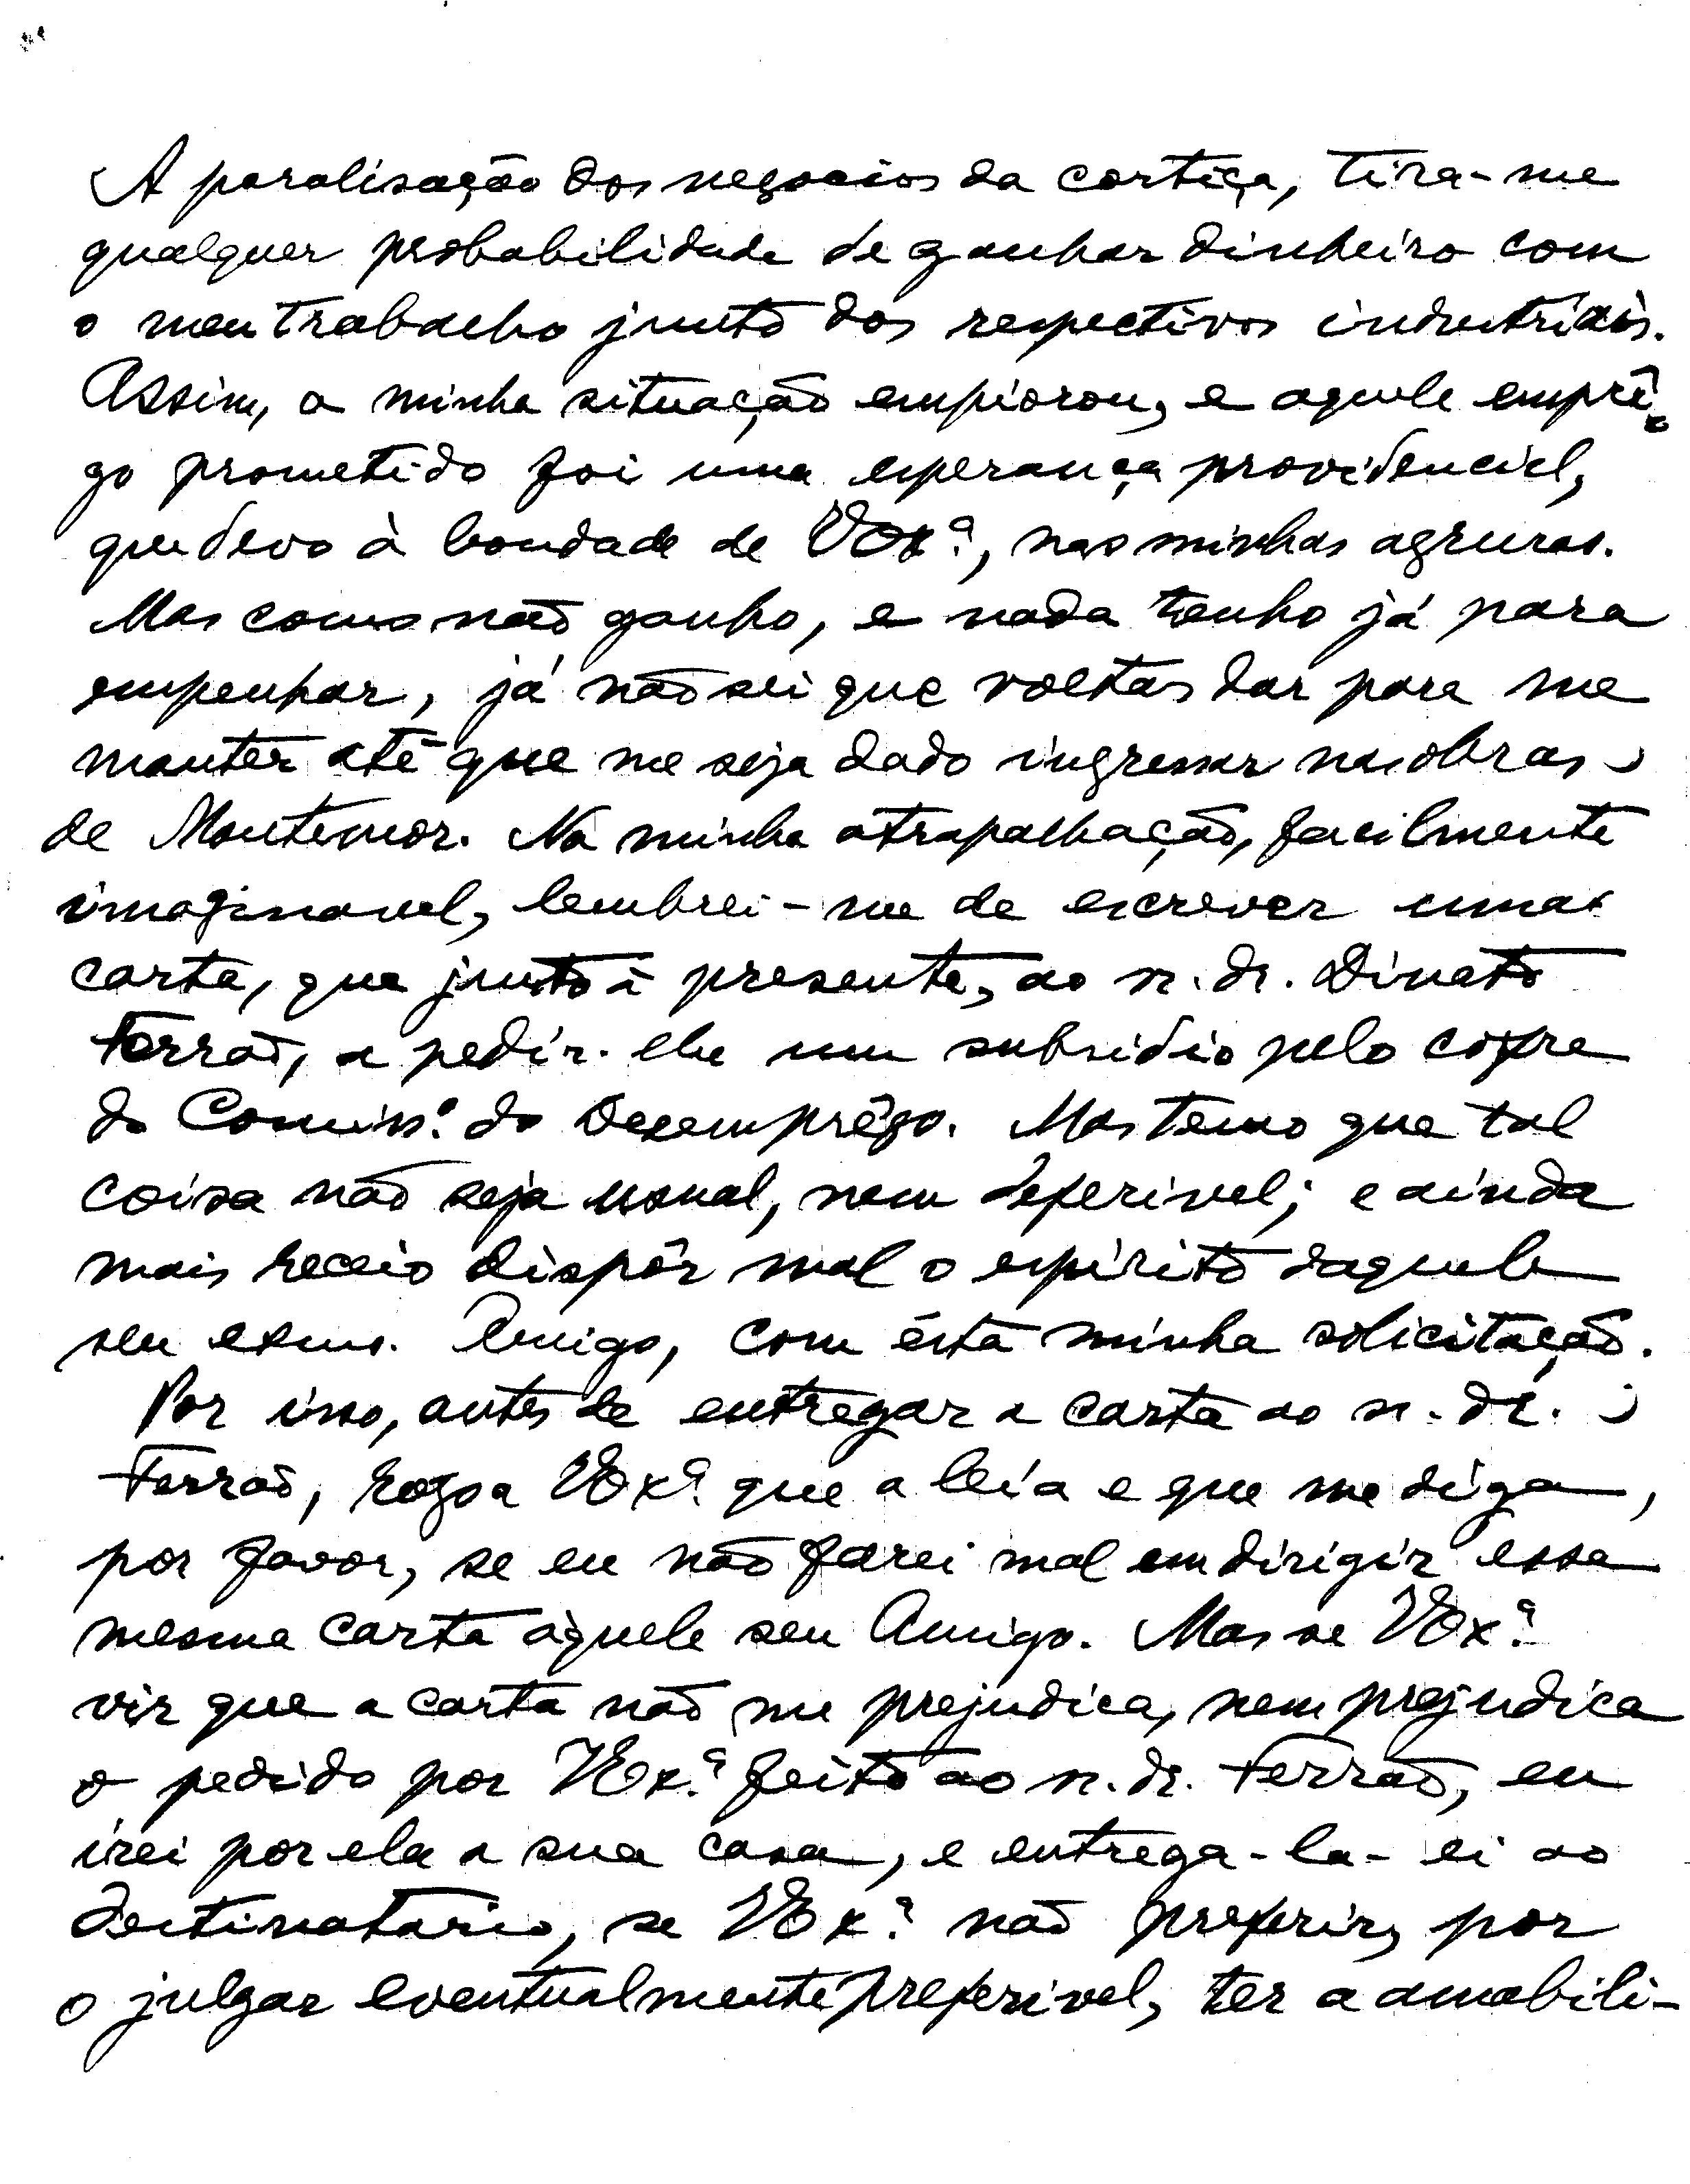 A paralisação dos negocios da cortiça, tira-me
qualquer probabilidade de ganhar dinheiro com
o meu trabalho junto dos respectivos industriais.
Assim, a minha situação empiorou, e aquele emprê-
go prometido foi uma esperança providencial,
que devo à bondade de VExª, nas minhas agruras.
Mas como não ganho, e nada tenho já para
empenhar, já não sei que voltas dar para me
manter até que me seja dado ingressar nas obras
de Montemor. Na minha atrapalhação, facilmente
imaginavel, lembrei-me de escrever uma
carta, que junto à presente, ao sr. dr. Dinato
Ferrão, a pedir-lhe um subsidio pelo cofre
do Comissº. do Desemprêgo. Mas temo que tal
coisa não seja usual, nem deferivel; e ainda
mais receio dispôr mal o espirito daquele
seu exmo. Amigo, com ésta minha solicitação.
Por isso, antes de entregar a carta ao sr. dr.
Ferrão, rogo a VExª. que a leia e que me diga,
por favor, se eu não farei mal em dirigir essa
mesma carta àquele seu Amigo. Mas se VExª.
vir que a carta não me prejudica, nem prejudica
o pedido por VExª. feito ao sr. dr. Ferrão, eu
irei por ela a sua casa, e entrega-la-ei ao
destinatario, se VExª. não preferir, por
o julgar eventualmente preferivel, ter a amabili-